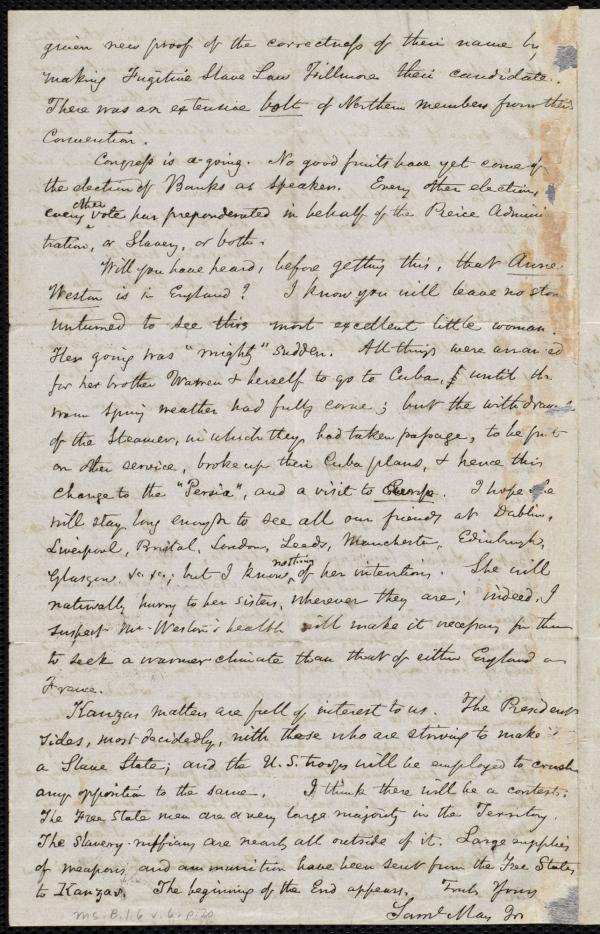 given new proof of the correctness of their name by
making Fugitive Slave Law Fillmore their candidate.
There was an extensive bolt of Northern members from this
Convention.
Congress is a-going. No good fruits have yet come of
the election of Banks as speaker. Every other election,
every other vote has preponderated in behalf of the Pierce Adminis
tration, or Slavery, or both.
Will you have heard, before getting this, that Anne
Weston is in England? I know you will leave no stone
unturned to see this most excellent little woman.
Her going was "mighty" sudden. All things were arranged
for her brother Warren & herself to go to Cuba, until the
warm spring weather had fully come; but the withdrawal
of the Steamer, in which they had taken passage, to be put
on other service, broke up their Cuba plans, & hence this
change to the "Persia", and a visit to Europe. I hope she
will stay long enough to see all our friends at Dublin,
Liverpool, Bristol, London, Leeds, Manchester, Edinburgh,
Glasgow, &c. &c.; but I know nothing of her intentions. She will
naturally hurry to her sisters, wherever they are; indeed, I
suspect Mr. Weston's health will make it necessary for them
to seek a warmer climate than that of either England or
France.
Kanzas matters are full of interest to us. The President
sides, most decidedly, with those who are striving to make it
a Slave State; and the U.S. troops will be employed to crush
any opposition to the same. I think there will be a contest.
The Free State men are a very large majority in the Territory.
The Slavery-ruffians are nearly all outside of it. Large supplies
of weapons and ammunition have been sent from the Free States
to Kanzas. The beginning of the End appears. Truly Yours
Saml. May Jr.
Ms. B.1.6 v.6. p.20